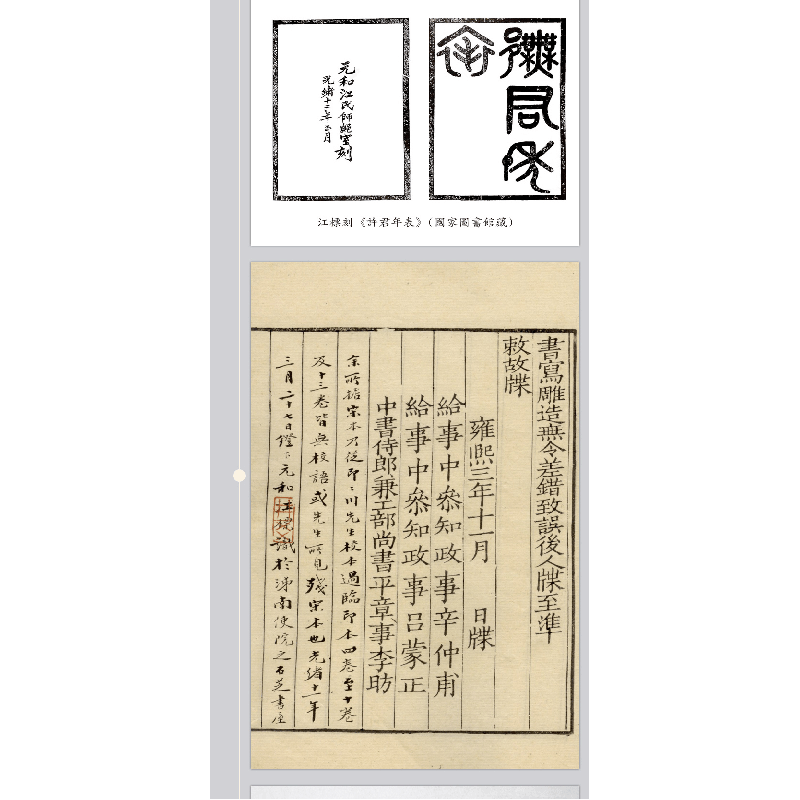 鄦君年
表
元和江氏師鄦室刻
光緒十二年正月
江標刻《許君年表》(國家圖書館藏)
書寫雕造無令差錯致誤後人牒至準
敕故牒
雍熙三年十一月　日牒
給事中叅知政事辛仲甫
給事中叅知政事呂蒙正
中書侍郎兼工部尚書平章事李昉
余所據宋本乃從川先生校本過臨本四卷至十卷
及十三卷皆無校語或先生所見殘宋本也光緒十一年
三月二十七日鐙下元和江標識於濟南使院之石芝書屋